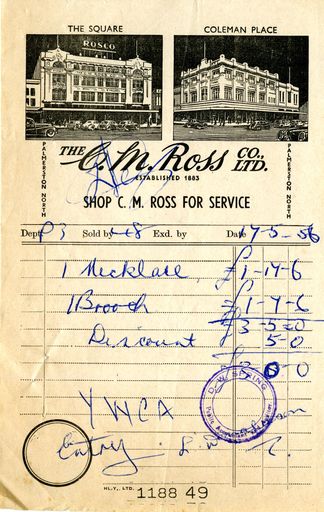 THE SQUARE
COLEMAN PLACE
ROSCO
THE C. M. ROSS CO., LTD.
ESTABLISHED 1883
PALMERSTON NORTH
PALMERSTON NORTH
SHOP C. M. ROSS FOR SERVICE
Dept. P3 Sold by 8 Exd. by Date 7-5-56
1 Necklace £1-17-6
1 Brooch £1-7-6
£3-5-0
Discount 5-0
£3-0-0
YWCA
Entry
HL.Y., LTD. 1188 49